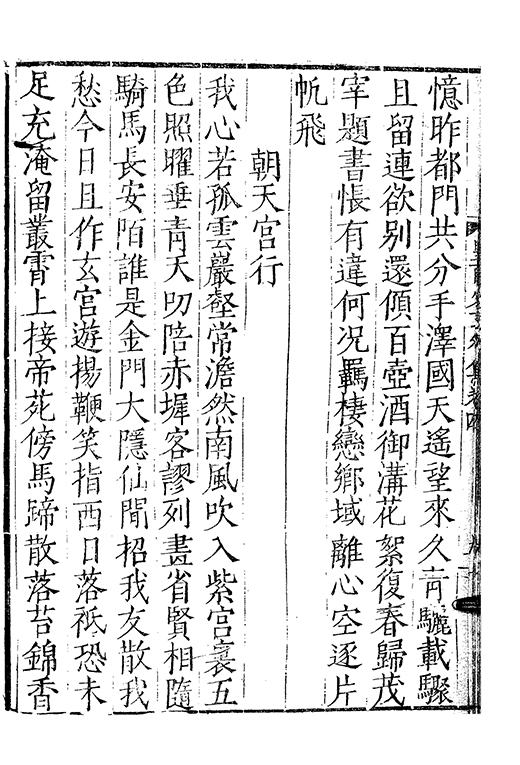 憶昨都門共分手澤國天遙望來久青驪載驟
且留連欲别還傾百壺酒御溝花絮復春歸茂
宰題書悵有違何况羈棲戀鄉域離心空逐片
帆飛
朝天宫行
我心若孤雲巖壑常澹然南風吹入紫宫裏五
色照曜垂青天叨陪赤墀客謬列畫省賢相隨
騎馬長安陌誰是金門大隱仙閒招我友散我
愁今日且作玄宫遊揚鞭笑指西日落祗恐未
足充淹留叢霄上接帝苑傍馬蹄散落苔錦香